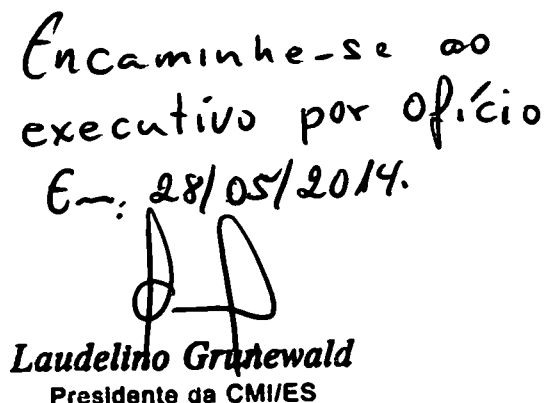 Encaminhe-se ao
executivo por ofício
Em: 28/05/2014.
Laudelino Grunewald
Presidente da CMI/ES